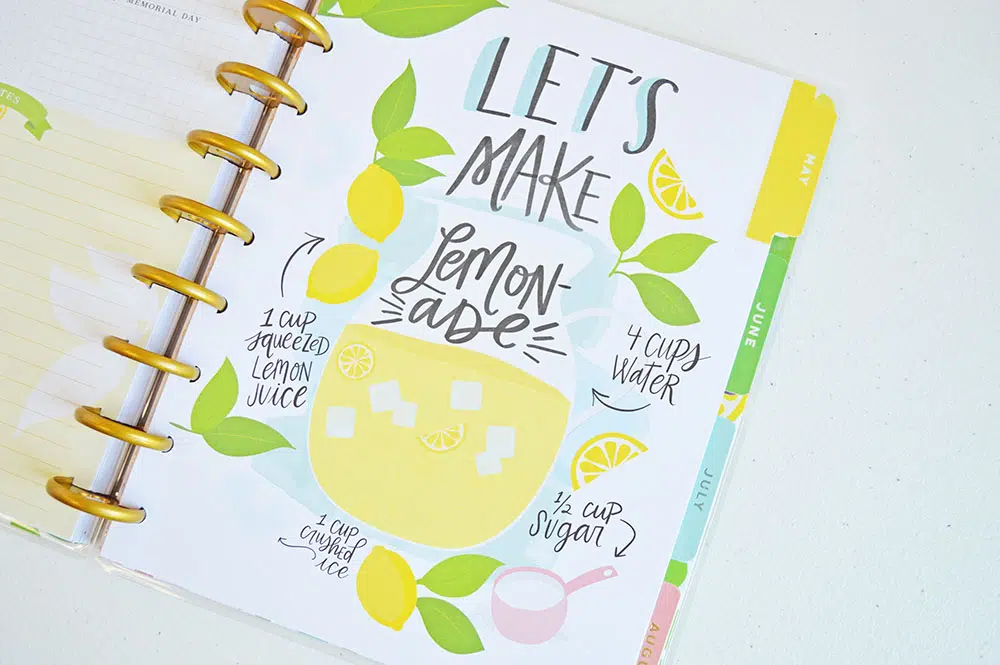 MEMORIAL DAY
LET'S
MAKE
LEMON-
ADE
1 CUP
SQUEEZED
LEMON
JUICE
4 CUPS
WATER
1/2 CUP
SUGAR
1 CUP
CRUSHED
ICE
MAY
JUNE
JULY